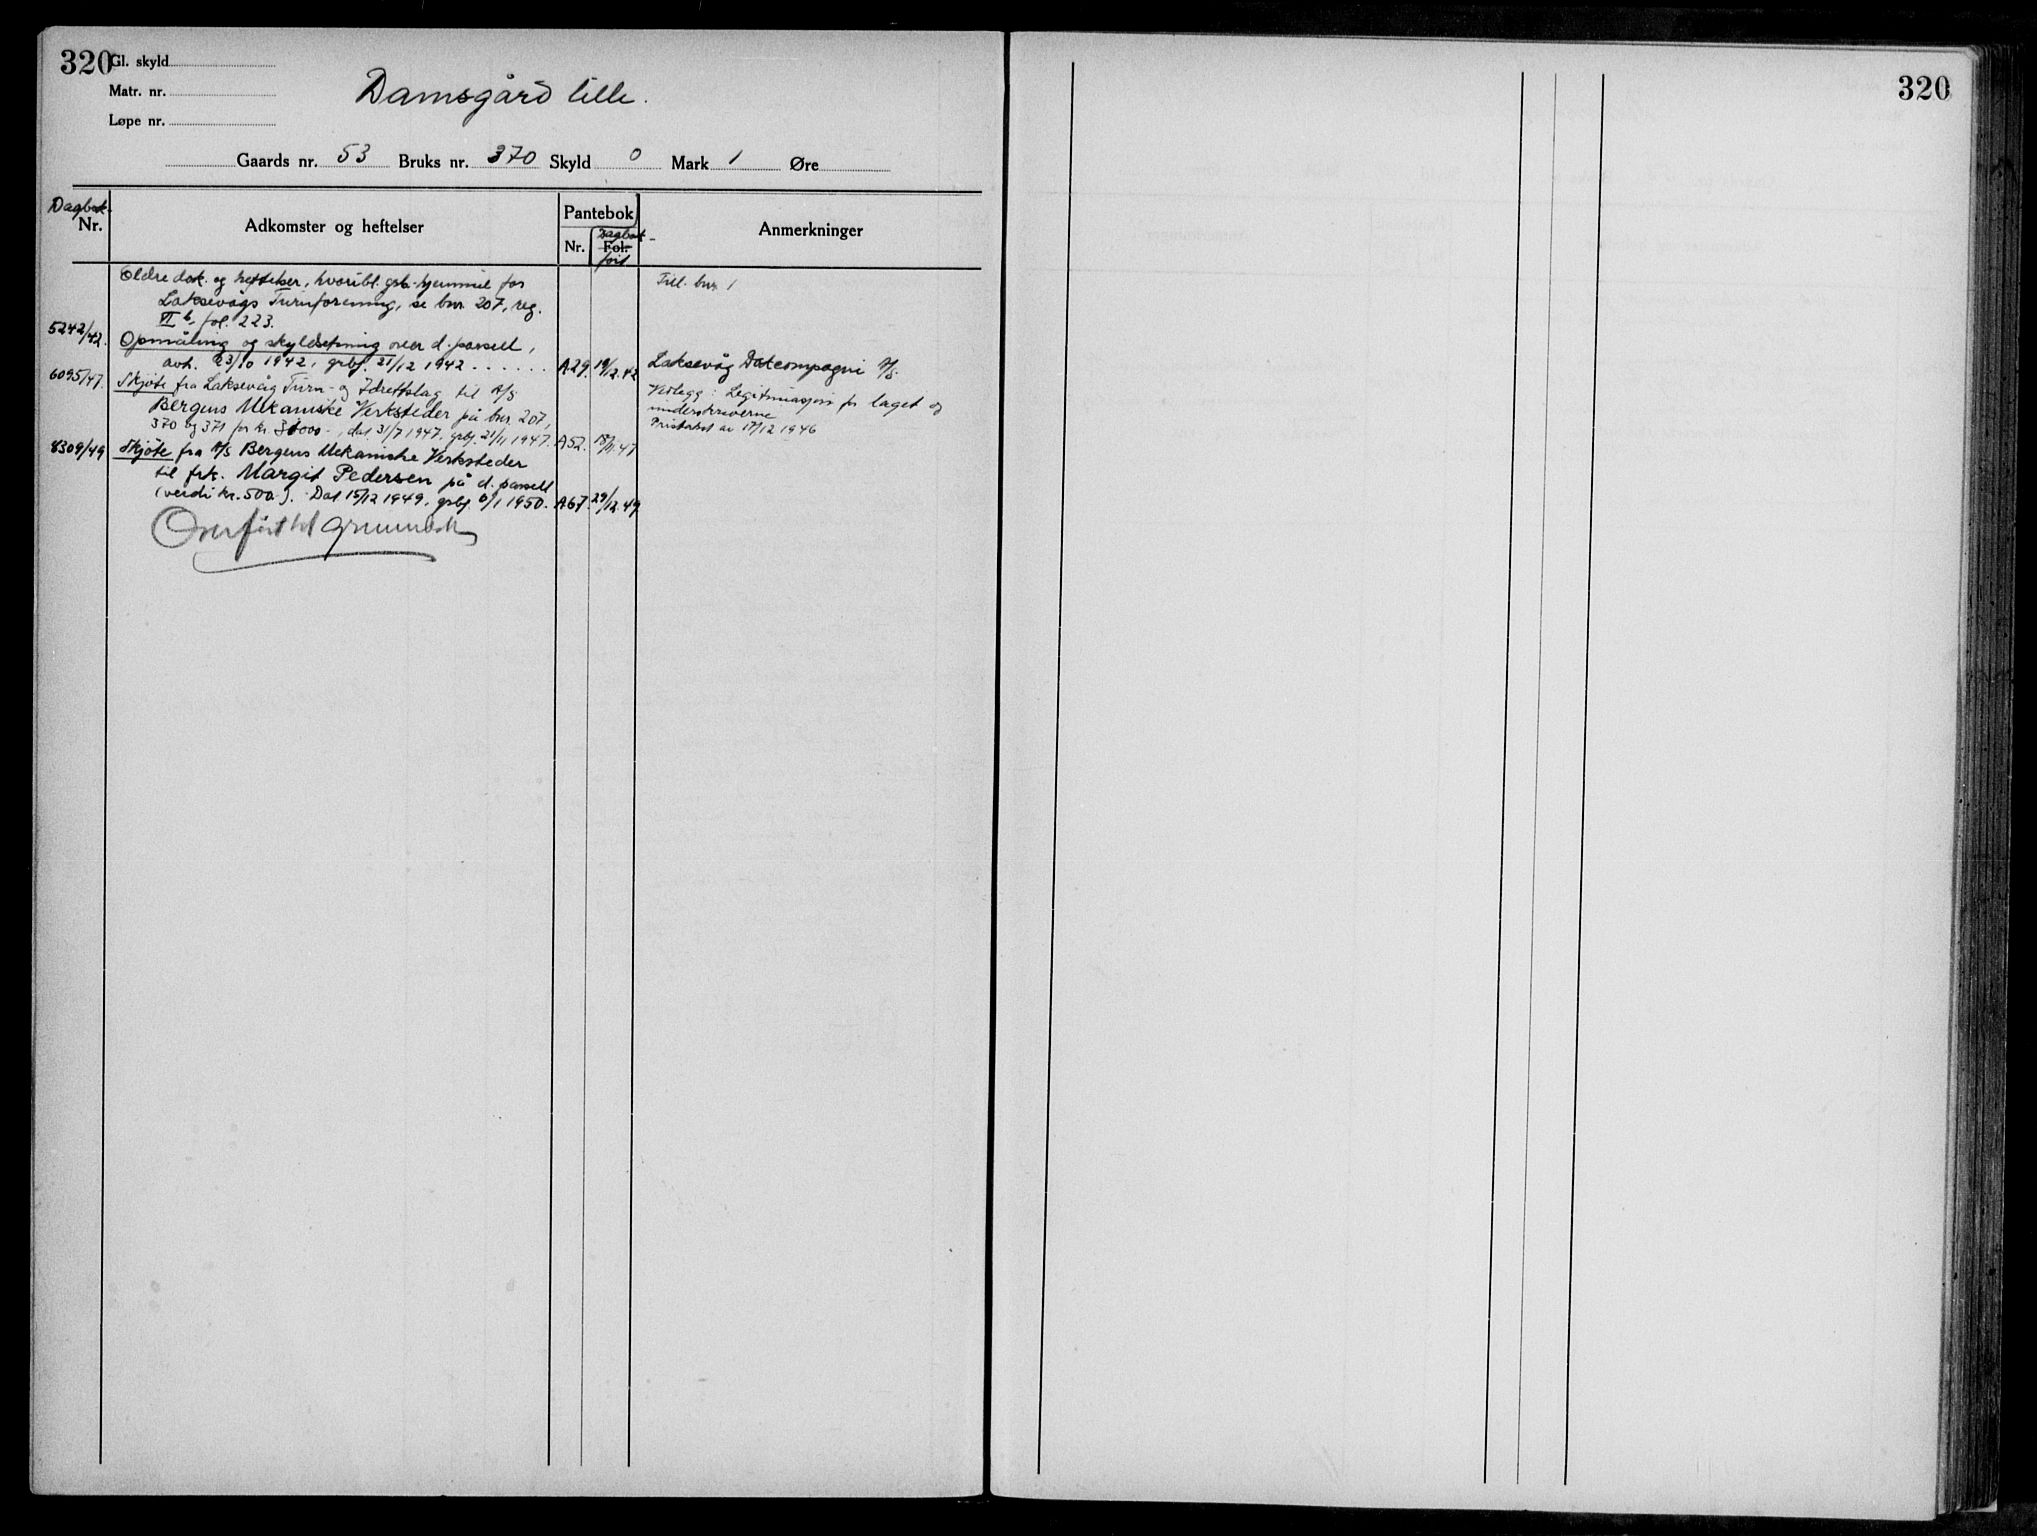 320
Gl. skyld
Matr. nr.
Løpe nr.
Damsgård lille.
Gaards nr. 53 Bruks nr. 370 Skyld 0 Mark 1 Øre
Dagbok-
Nr.
Adkomster og heftelser
Pantebok
Nr.
Dagbok-
Fol.
ført
Anmerkninger
Eldre dok. og heftelser, hvoribl. grb.-hjemmel for
Laksevågs Turnforening, se bnr. 207, reg.
VI b, fol. 223.
Till. bnr. 1
5242/42.
Opmåling og skyldsetning over d. parsell,
avh. 23/10 1942, grbf. 21/12 1942 . . . . . . A29. 19/12.42
Laksevåg Dokcompagni A/S.
6095/47.
Skjøte fra Laksevåg Turn- og Idrettslag til A/S
Bergens Mekaniske Verksteder på bnr. 207,
370 og 371 for kr. 31000.-, dat. 31/7 1947, grbf. 21/11 1947. A52. 18/11.47
Vedlegg: Legitimasjon for laget og
underskriverne
Pristakst av 17/12 1946
8309/49
Skjøte fra A/S Bergens Mekaniske Verksteder
til frk. Margit Pedersen på d. parsell
(verdi kr. 500.-). Dat. 15/12 1949, grbf. 6/1 1950. A67. 29/12.49
Overført til grunnbok
320